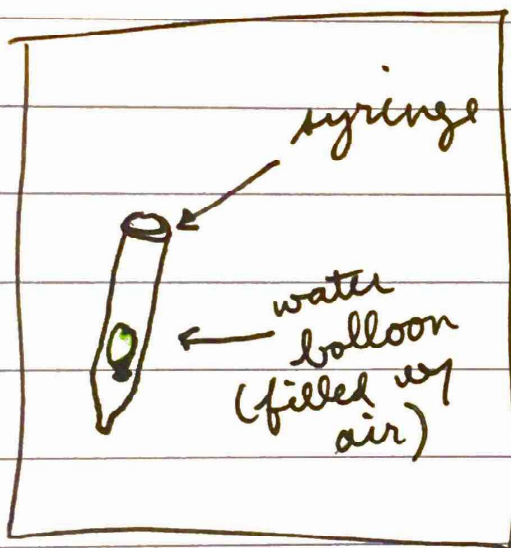 syringe
water
balloon
(filled w/
air)